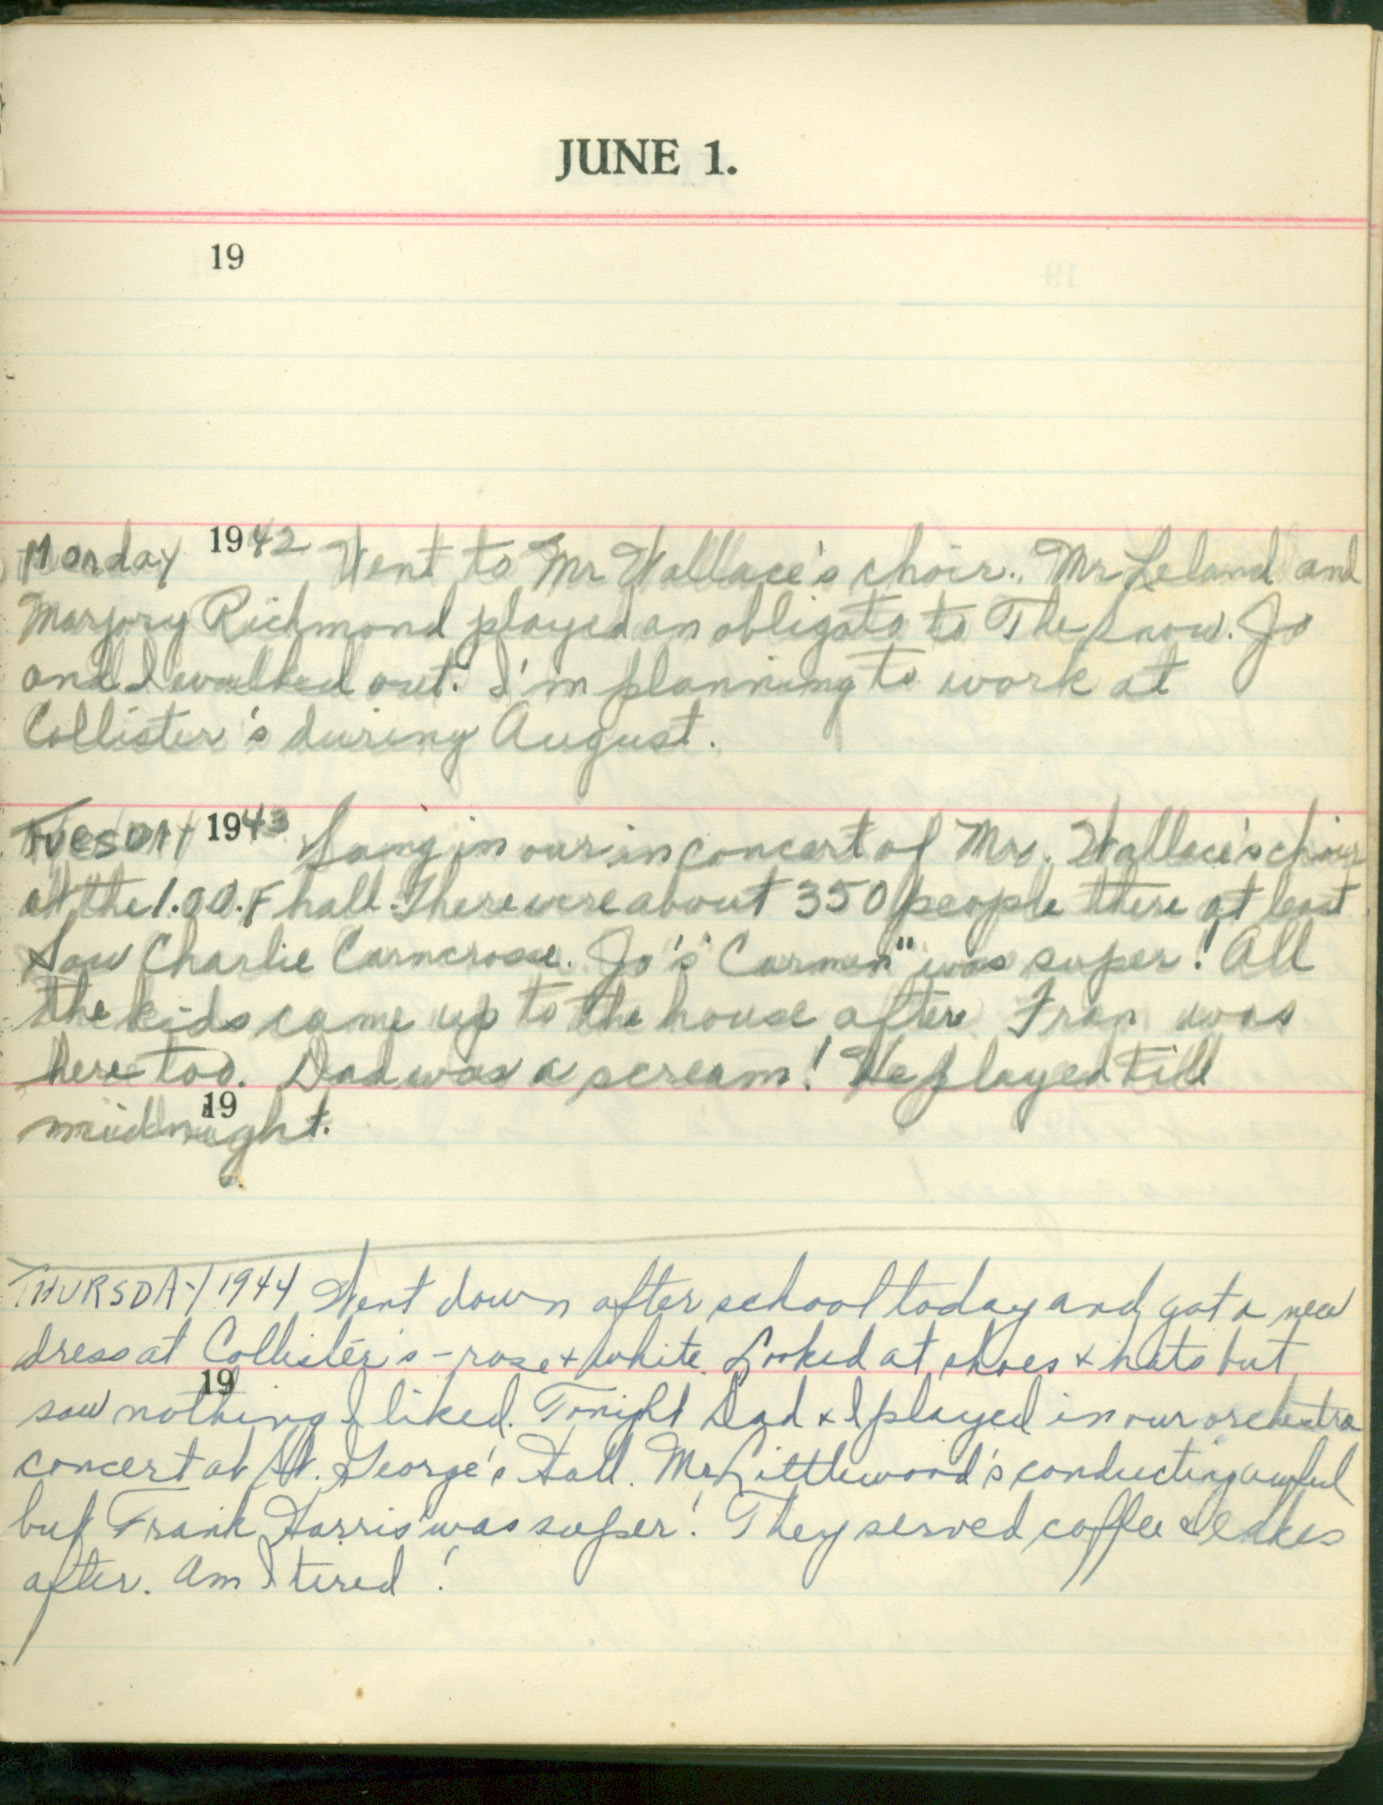 JUNE 1.
19
Monday 1942 Went to Mr Wallace's choir. Mr Leland and
Marjory Richmond played an obligato to The Snow. Jo
and I walked out. I'm planning to work at
Collister's during August.
TUESDAY 1943 Sang in our in concert of Mrs. Wallace's choir
at the I.O.O.F hall. There were about 350 people there at least
Saw Charlie Carncrosse. Jo's "Carmen" was super! All
the kids came up to the house after Fran was
here too. Dad was a scream! He played till
19
midnight.
THURSDAY 1944 Went down after school today and got a new
dress at Collister's - rose + white. Looked at shoes + hats but
19
saw nothing I liked. Tonight Dad + I played in our orchestra
concert at St. George's Hall. Mr Littlewood's conducting awful
but Frank Harris was super! They served coffee & cakes
after. Am I tired!